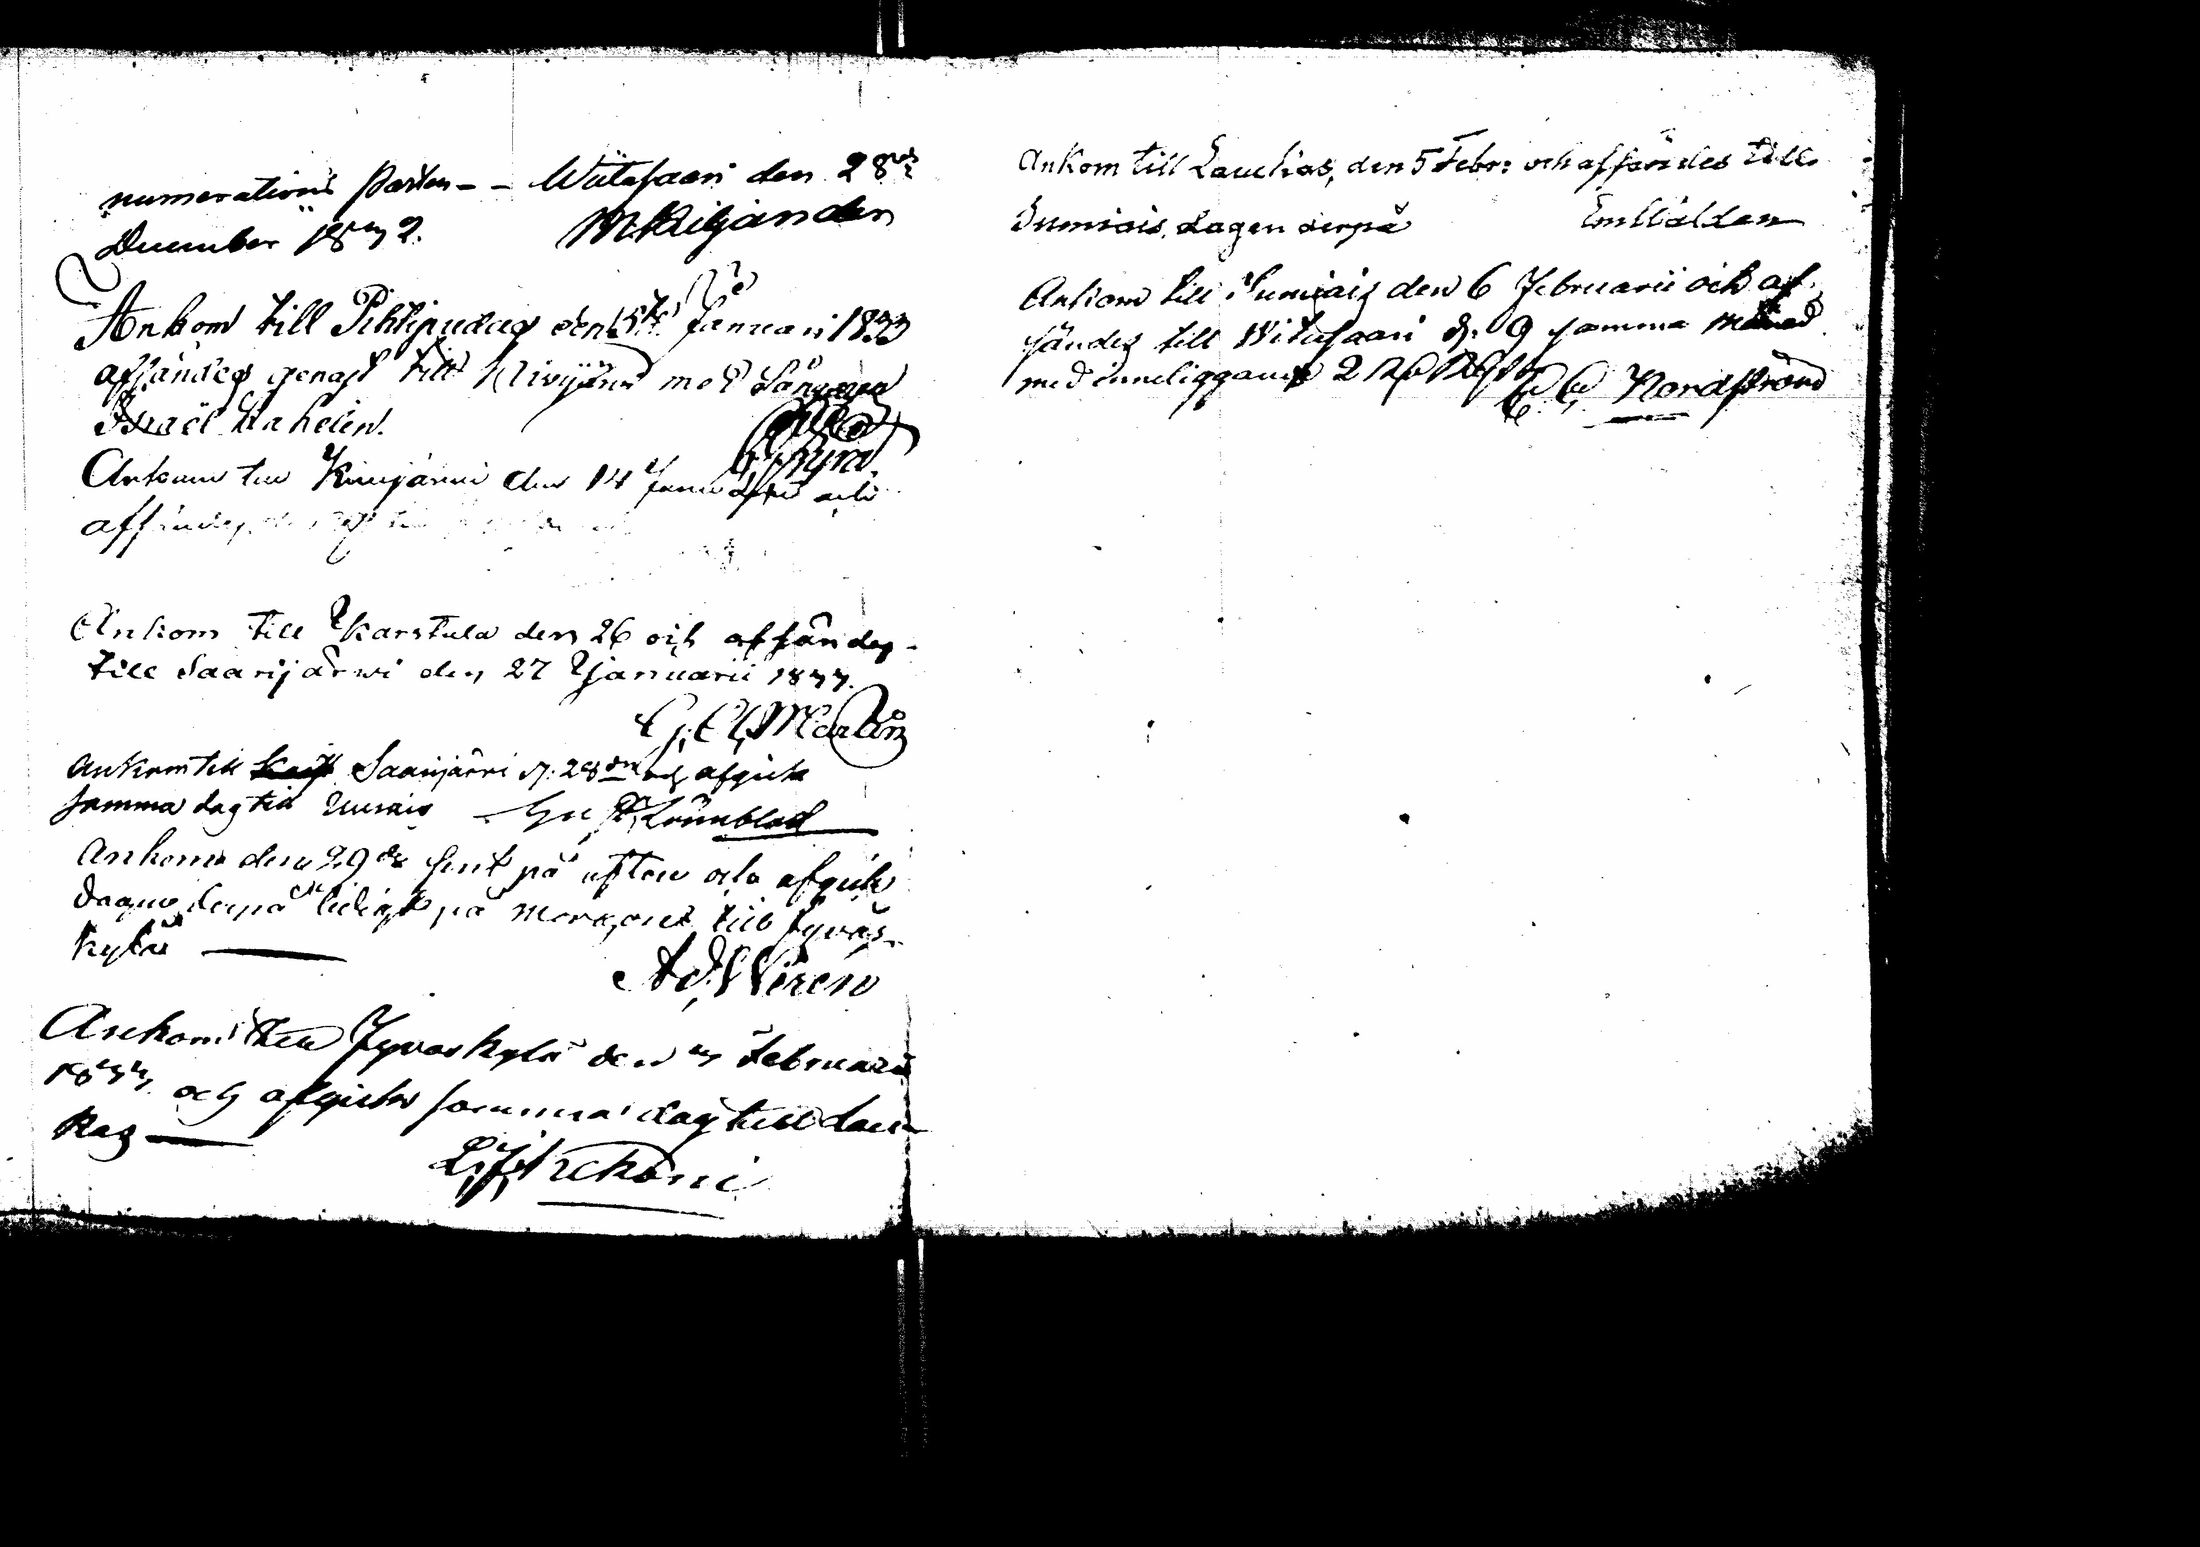 numerations Posten - - Witasaari den 28de
December 1832. M Kiljander
Ankom till Pihtipudas den 13de Januari 1833
afsändes genast till Kivijärvi med
Israël Kahelin.
Ankom till Kivijärvi den 14 Januarii och
afsändes
Ankom till Karstula den 26 och afsändes
till Saarijärwi den 27 Januarii 1833.
Ankom till Saarijärvi d. 28de och afgick
samma dag till Uurais Lönnblad
Ankom den 29de sent på afton och afgick
dagen derpå bidigt på morgonen till Jyväs-
kylä
Ad. Wiren
Ankom till Jyväskylä den 3 Februarii
1833 och afgick samma dag till Lau-
kas
Ankom till Laukas, den 5 Febr: och afsändes till
Sumiais dagen derpå Em Walden
Ankom till Sumiais den 6 Februarii och af-
sändes till Witasaari d. 9 samma Månad
med inneliggande 2 Nordström